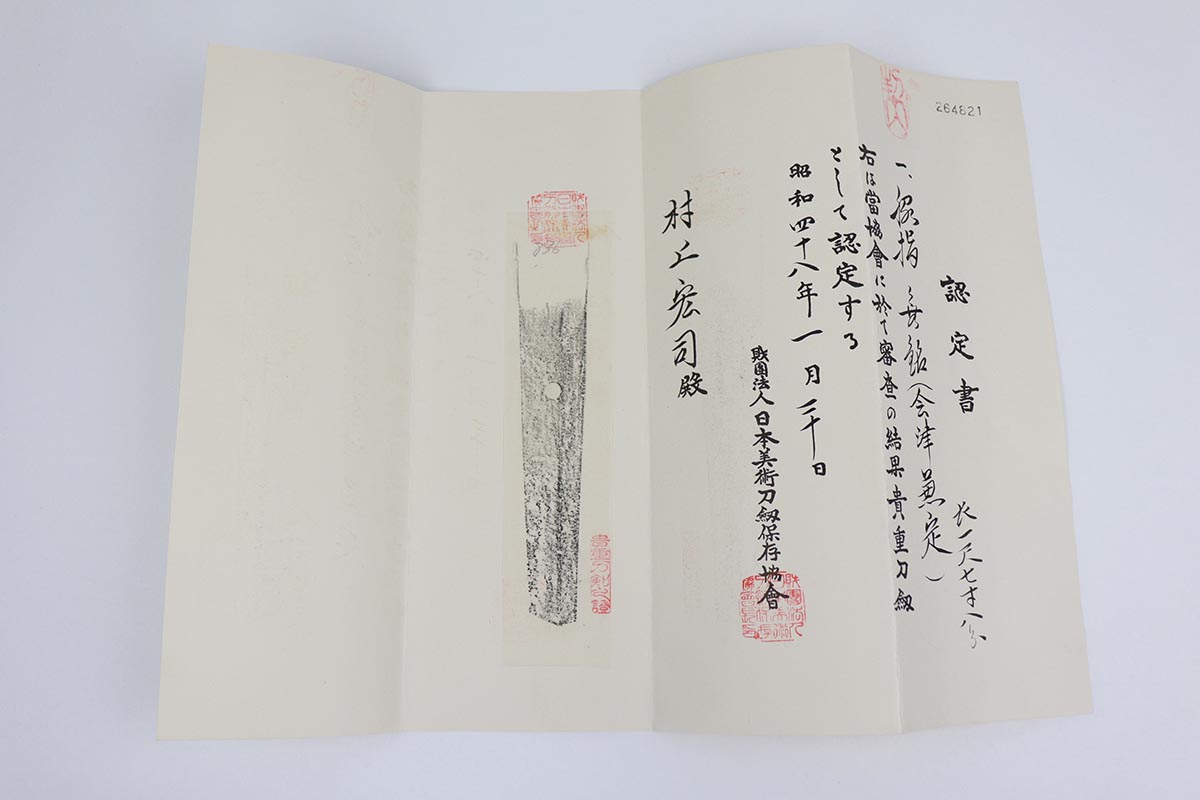 264821
認定書
一、脇指 無銘(会津兼定)
長一尺七寸八分
右は當協會に於て審査の結果貴重刀劔
として認定する
昭和四十八年一月三十日
財團法人日本美術刀劔保存協會
村上宏司殿
貴重刀剣之證